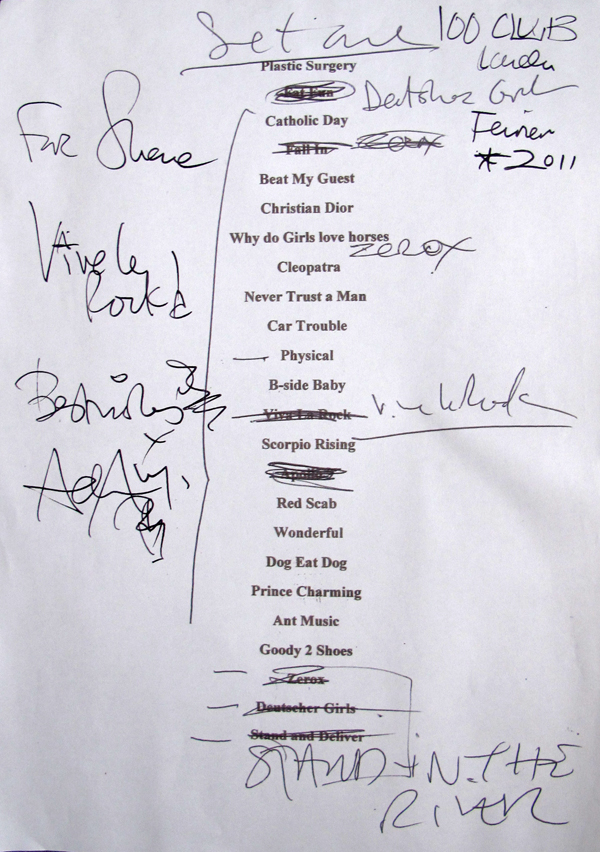 Set 100 CLUB
London
Plastic Surgery
Fat Fun Deutscher Girls
Catholic Day
For Shane
Fall In Zerox
2011
Beat My Guest
Christian Dior
Why do Girls love horses
ZEROX
Vive Le
Rock!
Cleopatra
Never Trust a Man
Car Trouble
Physical
B-side Baby
Best wishes
Viva La Rock Vive le Rock
Scorpio Rising
Adam Ant
Apollo 9
Red Scab
Wonderful
Dog Eat Dog
Prince Charming
Ant Music
Goody 2 Shoes
Zerox
Deutscher Girls
Stand and Deliver
STAND IN THE
RIVER